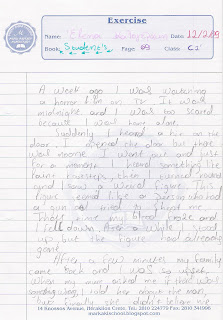 Exercise
Name: Date 12/2/09
Book: Students Page: 69 Class: C2
A week ago I was watching
a horror film on TV. It was
midnight and I was too scared
because I was home alone.
Suddenly I heard a hit on the
door. I opened the door but there
was noone. I went out and
for a moment. I heard something like
footsteps then I turned around
and saw a weird figure. This
figure like a who had
a gun and he me.
That's time my blood froze and
I fell down. After a while I stood
up but the figure had already
gone.
After a few minutes my family
came back and I was so upset.
When my mum asked me if there was
something wrong I told her about the man
but finally she didn't believe me.
14 Knossos Avenue, Heraklion Crete.